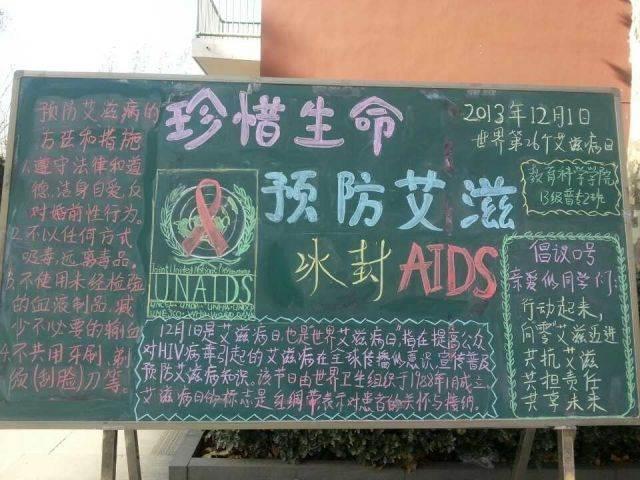 预防艾滋病的
方法和措施
1.遵守法律和道
德,洁身自爱,反
对婚前性行为。
2.不以任何方式
吸毒,远离毒品。
3.不使用未经检验
的血液制品,减
少不必要的输血
4.不共用牙刷,剃
须(刮脸)刀等。
珍惜生命
预防艾滋
冰封AIDS
UNAIDS
12月1日是艾滋病日也是"世界艾滋病日"指在提高公众
对HIV病毒引起的艾滋病在全球传播的意识,宣传普及
预防艾滋病知识。该节日由世界卫生组织于1988年1月成立
艾滋病日的标志是红绸带表示对患者的关怀与接纳。
2013年12月1日
世界第26个艾滋病日
教育科学学院
13级普专2班
倡议口号
亲爱的同学们:
行动起来,
向零"艾滋迈进
共抗艾滋
共担责任
共享未来